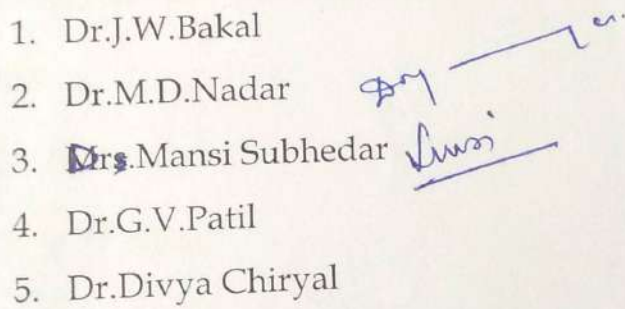 1. Dr.J.W.Bakal
2. Dr.M.D.Nadar
3. Drs.Mansi Subhedar
4. Dr.G.V.Patil
5. Dr.Divya Chiryal